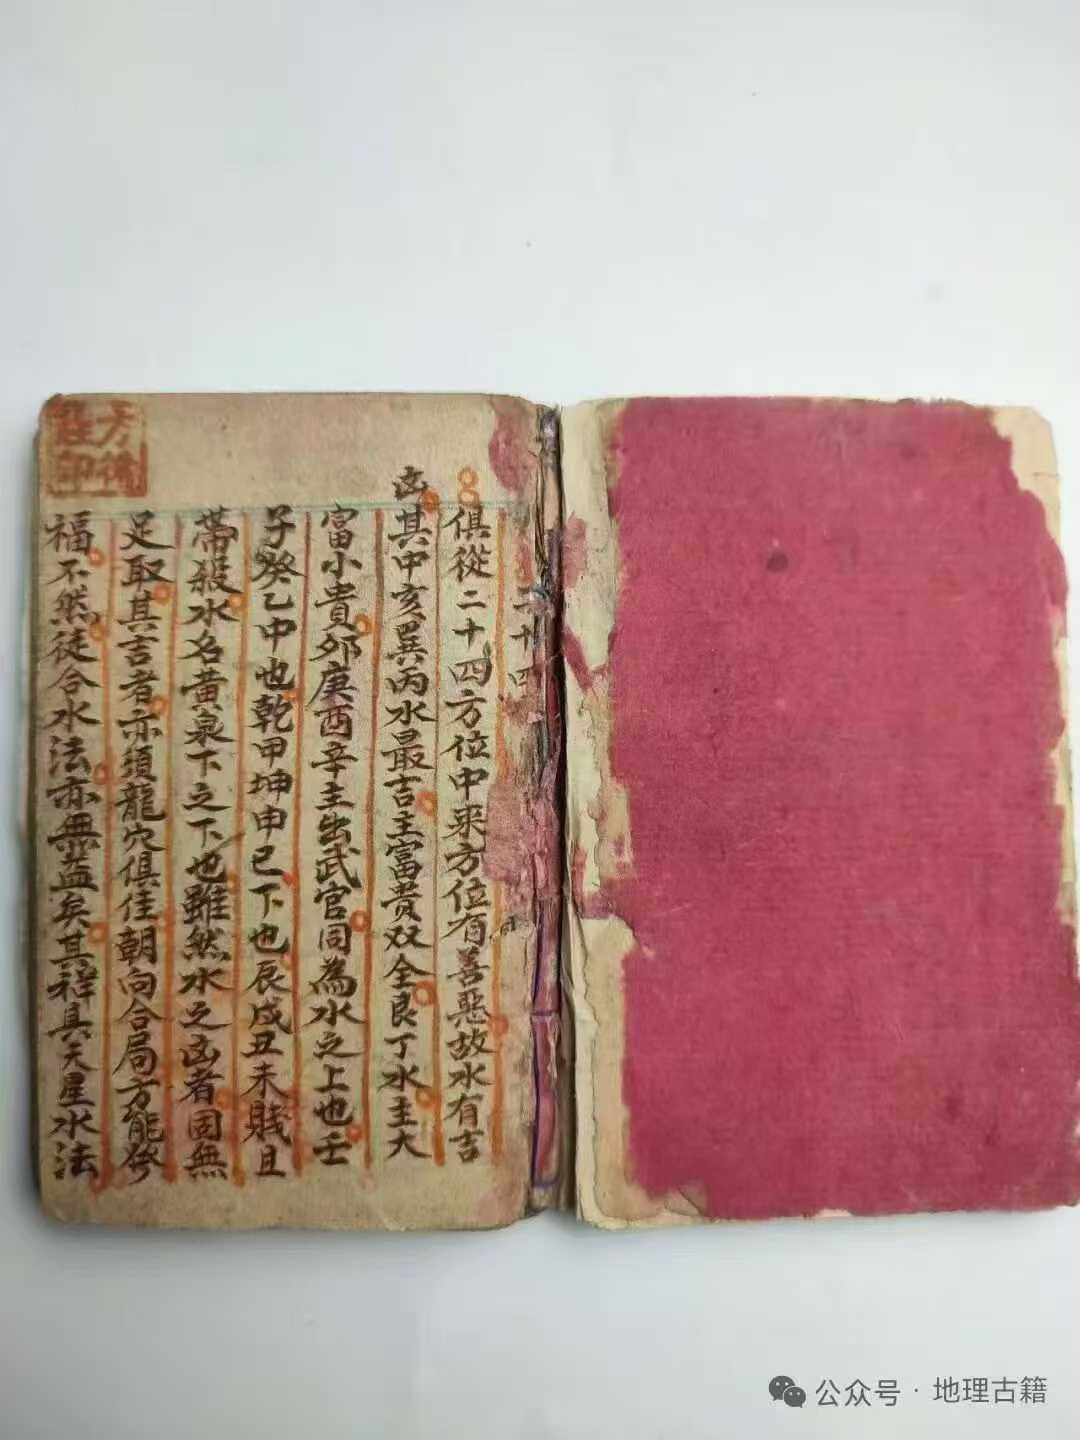 二十四
俱從二十四方位中来方位有善惡故水有吉
凶其中亥巽丙水最吉主富貴双全艮丁水主大
富小貴卯庚酉辛主出武官同為水之上也壬
子癸乙中也乾甲坤申巳下也辰戌丑未賤且
帶殺水名黄泉下之下也雖然水之凶者固無
足取其吉者亦須龍穴俱佳朝向合局方能發
福不然徒合水法亦無益矣其祥具天星水法
公众号·地理古籍